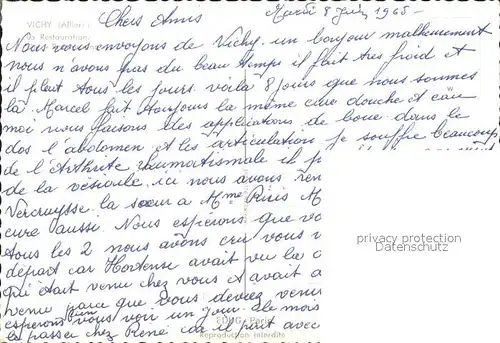 VICHY (Allier)
La Restauration
Chers Amis
Mardi 8 Juin 1965 -
Nous vous envoyons de Vichy un bonjour malheureusement
nous n'avons pas du beau temps il fait très froid et
il pleut tous les jours voilà 8 jours que nous sommes
là Marcel fait toujours la même cure douche et eau
moi nous faisons des applications de boue dans le
dos l'abdomen et les articulation je souffre beaucoup
de l'Arthrite rhumatismale il p
de la vésicule. ici nous avons ren
Vercruysse la sœur a Mme Ruis M
cure aussi. Nous espérons que vo
tous les 2 nous avons cru vous v
départ car Hortense avait vu la c
qui était venu chez vous et avait a
venu parce que vous deviez venir
espérons bien vous voir un jour. le mois
se passe chez René ça il part avec
EDUG - Paris
Reproduction interdite
privacy protection
ANDREAS-VERLAG.COM